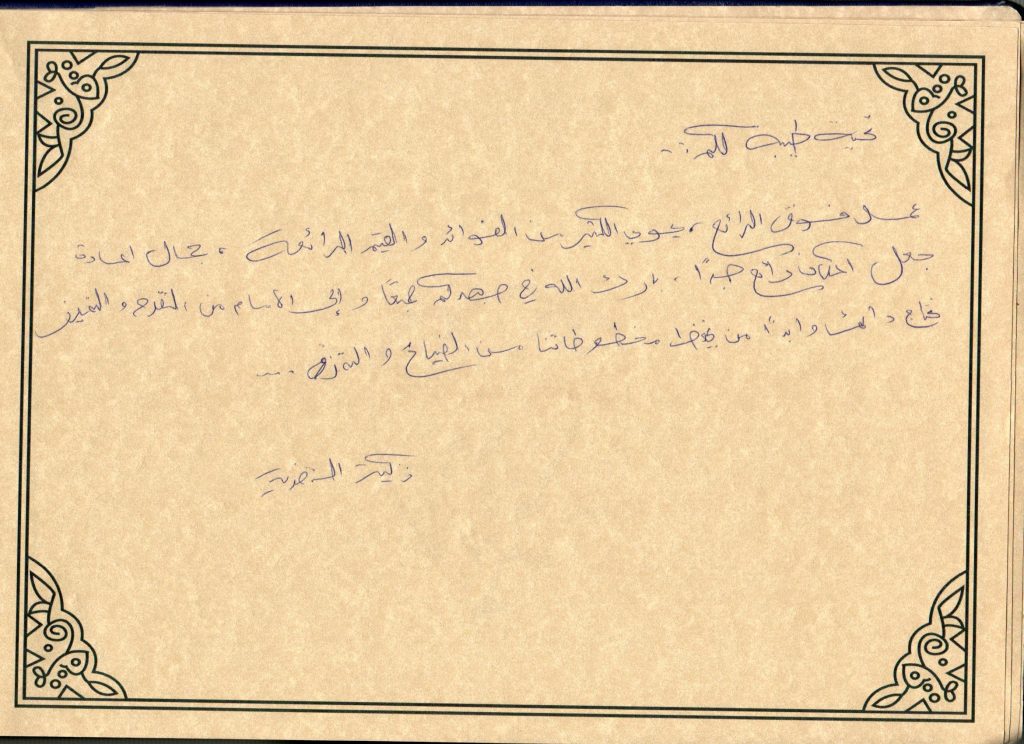 تحية طيبة لكم...
عمل فوق الرائع، يحوي الكثير من الفوائد و القيم الرائعة، جمال المادة
جعل المكان رائع جدًا. بارك الله في جهدكم جميعًا و إلى الأمام من التقدم و التميز
دائمًا و أبدًا من يحفظ مخطوطاتنا من الضياع و التمزق ...
زكية